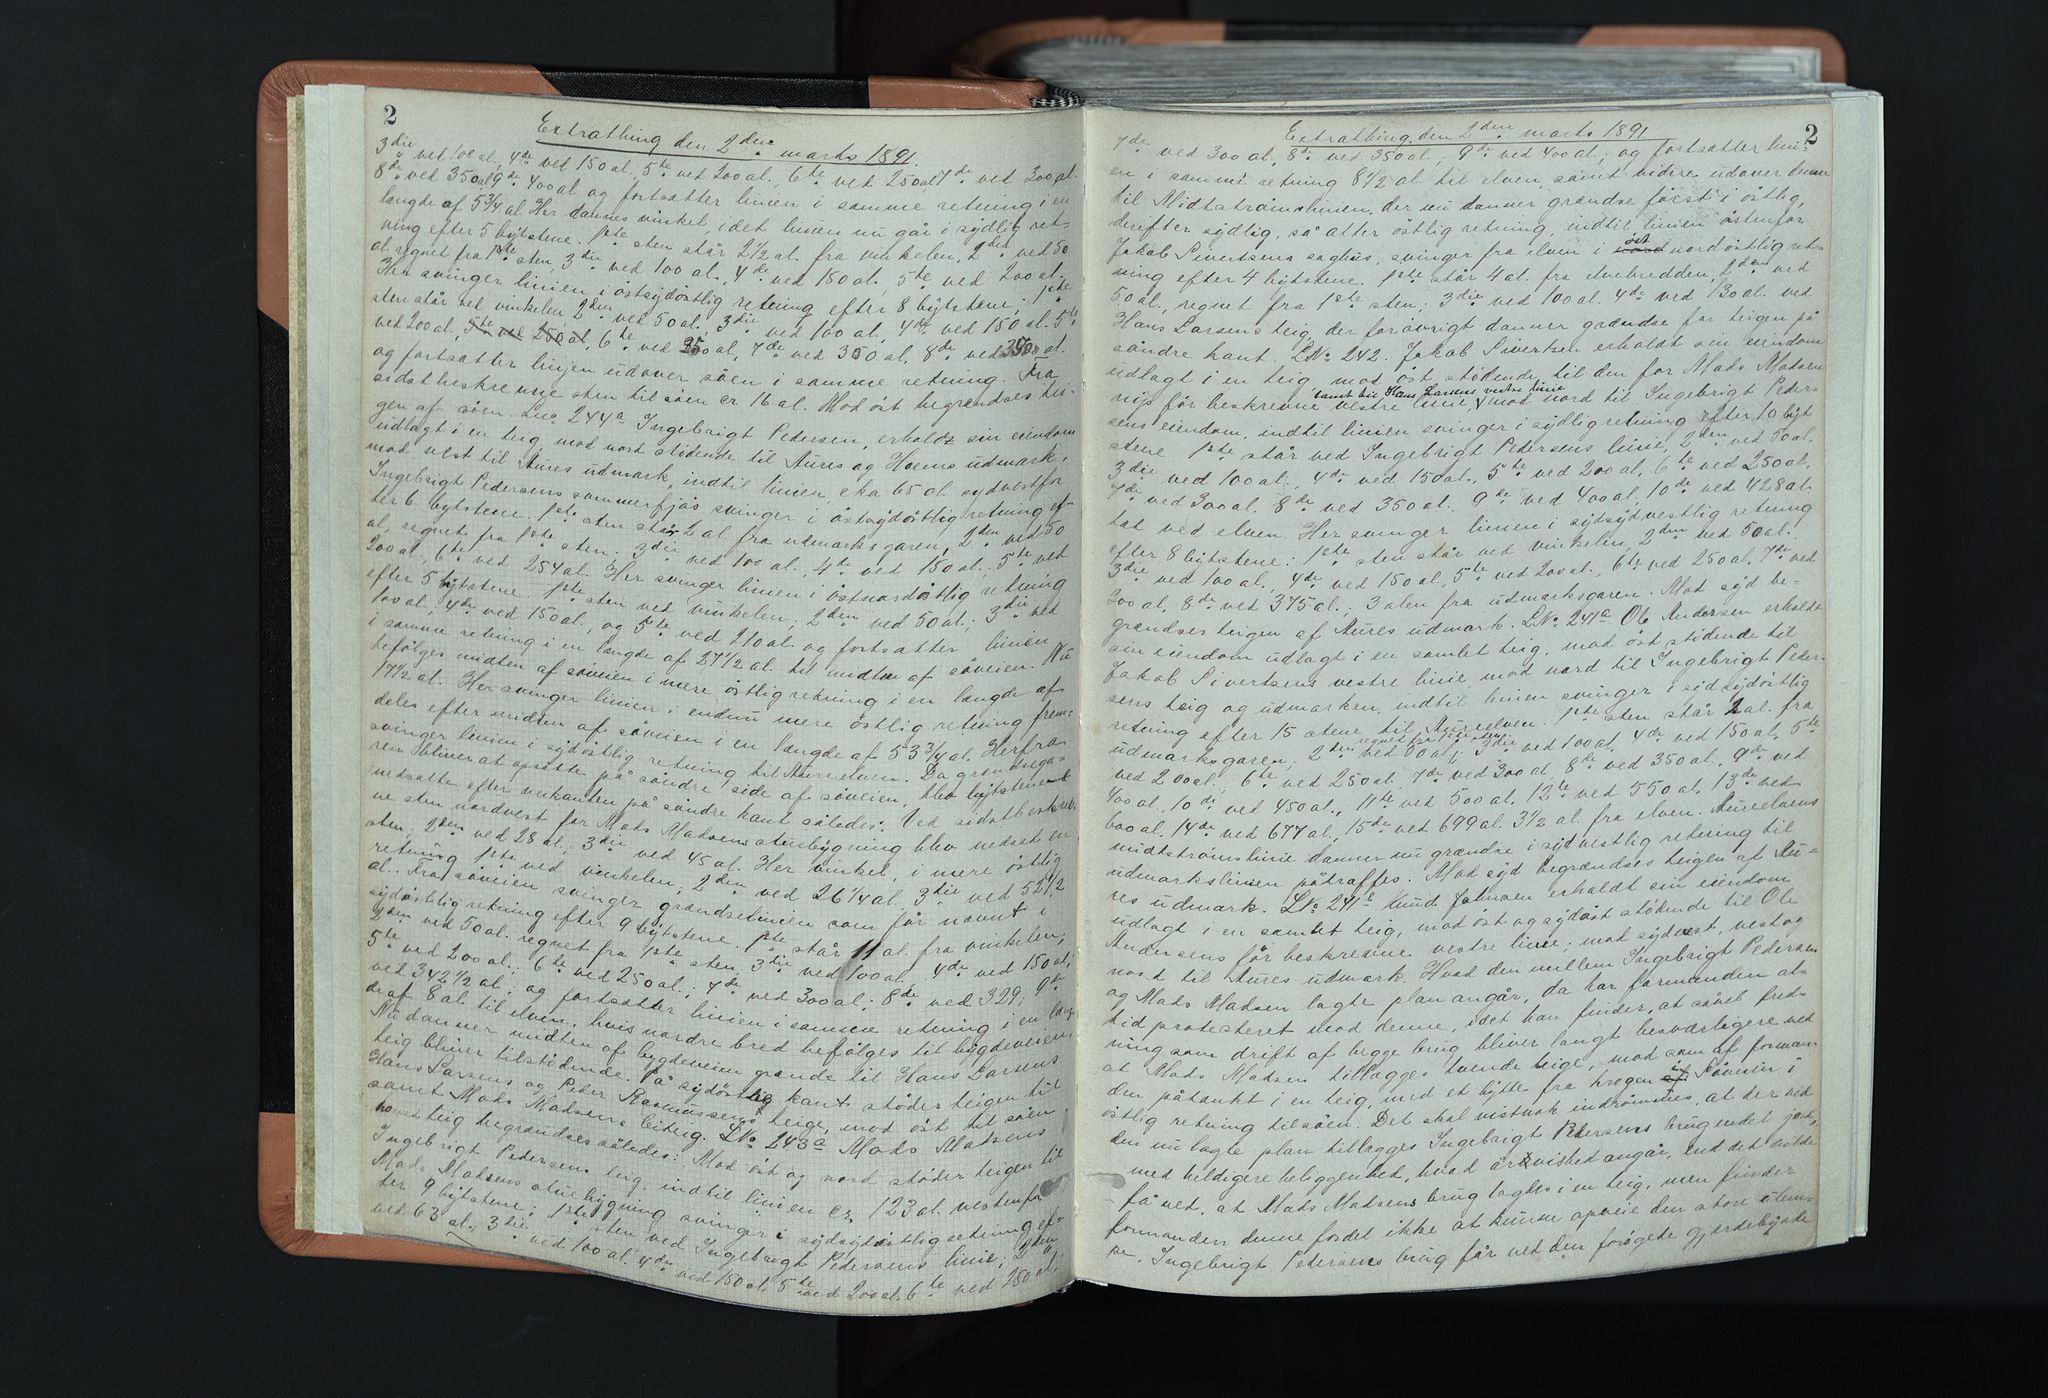 2
Extrathing den 2den marts 1891.
3die ved 100 al., 4de ved 150 al., 5te ved 200 al., 6te ved 250 al 7de ved 300 al.
8de ved 350 al 9de 400 al og fortsætter linien i samme retning i en
længde af 5 3/4 al Her dannes vinkel, idet linien nu går i sydlig ret-
ning efter 5 bytstene. 1ste sten står 2 1/2 al. fra vinkelen, 2den ved 50
al. regnet fra 1ste sten, 3die ved 100 al., 4de ved 150 al., 5te ved 200 al.
Her svinger linien i östsydöstlig retning efter 8 bytstene; 1ste
sten står ved vinkelen 2den ved 50 al., 3die ved 100 al., 4de ved 150 al. 5te
ved 200 al., 5te ved 250 al, 6te ved 250 al, 7de ved 300 al, 8de ved 350 al.
og fortsætter linjen udover söen i samme retning. Fra
sidstbeskrevne sten til söen er 16 al. Mod öst begrændses tei-
gen af söen. Lno 244a Ingebrigt Pedersen, erholdt sin eiendom
udlagt i en teig mod nort stödende til Aures og Hoems udmark,
mod vest til Aures udmark, indtil linien, cka 65 al. sydvestfor
Ingebrigt Pedersens sommerfjös svinger i östsydöstlig retning ef-
ter 6 bytstene. 1ste sten står 2 al fra udmarksgaren, 2den ved 50
al, regnet fra 1ste sten. 3die ved 100 al., 4te ved 150 al., 5te ved
200 al., 6te ved 254 al. Her svinger linien i östnordöstlig retning
efter 5 bytstene. 1ste sten ved vinkelen, 2den ved 50 al.; 3die ved
100 al., 4de ved 150 al., og 5te ved 210 al. og fortsætter linien
i samme retning i en længde af 27 1/2 al. til midten af söveien. Nu
befölges midten af söveien i mere östlig retning i en længde af
17 1/2 al. Her svinger linien i endnu mere östlig retning frem-
deles efter midten af söveien i en længde af 53 3/4 al. Herfra
svinger linien i sydöstlig retning til Aureelven. Da grændsega-
ren bliver at opsætte på söndre side af söveien, blev bytstenene
nedsatte efter veikanten på söndre kant således: Ved sidstbeskrev-
ne sten nordvest for Mads Madsens stuebygning blev nedsat en
sten, 2den ved 28 al., 3die ved 45 al. Her vinkel, i mere östlig
retning 1ste ved vinkelen, 2den ved 26 1/4 al, 3die ved 52 1/2
al. Fra söveien svinger grændselinien som för nævnt i
sydöstlig retning efter 9 bytstene. 1ste står 11 al. fra vinkelen;
2den ved 50 al. regnet fra 1ste sten, 3die ved 100 al. 4de ved 150 al,
5te ved 200 al.; 6te ved 250 al.; 7de ved 300 al.; 8de ved 329; 9de
ved 342 1/2 al; og fortsætter linien i samme retning i en læng-
de af 8 al. til elven, hvis nordre bred befölges til bygdeveien.
Nu danner midten af bygdeveien grænde til Hans Larsens
teig bliver tilstödende. På sydöstlig kant stöder teigen til
Hans Larsens og Peder Rasmussens teige, mod öst til söen
samt Mads Madsens biteig. LNo 243a Mads Madsens
hovedteig begrændses således: Mod öst og nord stöder teigen til
Ingebrigt Pedersens teig, indtil linien cr. 123 al. vestenfor
Mads Madsens stuebygning svinger i sydsydöstlig retning ef-
ter 9 bytstene; 1ste sten ved Ingebrigt Pedersens linie; 2den
ved 63 al., 3die ved 100 al. 4de ved 150 al, 5te ved 200 al. 6te ved 250 al;
2
Extrathing den 2den marts 1891
7de ved 300 al, 8de ved 350 al.; 9de ved 400 al; og fortsætter lini-
en i samme retning 8 1/2 al. til elven, samt videre udover denne
til Midtströmslinien, der nu danner grændse först i östlig,
derefter sydlig, så atter östlig retning, indtil linien östenfor
Jakob Sivertsens saghus, svinger fra elven i nord öst nordöstlig ret-
ning efter 4 bytstene. 1ste står 4 al. fra elvebredden, 2den ved
50 al., regnet fra 1ste sten; 3die ved 100 al. 4de ved 130 al. ved
Hans Larsens teig, der forövrigt danner grændse for teigen på
söndre kant. LNo 242. Jakob Sivertsen erholdt sin eiendom
udlagt i en teig, mod öst stödende til den for Mads Madsen
nys för beskrevne vestre linie samt til Hans Larsens vestre linie, mod nord til Ingebrigt Peder-
sens eiendom, indtil linien svinger i sydlig retning efter 10 byt
stene 1ste står ved Ingebrigt Pedersens linie, 2den ved 50 al.
3die ved 100 al., 4de ved 150 al., 5te ved 200 al, 6te ved 250 al,
7de ved 300 al. 8de ved 350 al. 9de ved 400 al. 10de ved 428 al.
tæt ved elven. Her svinger linien i sydsydvestlig retning
efter 8 bytstene: 1ste sten står ved vinkelen, 2den ved 50 al.
3die ved 100 al., 4de ved 150 al., 5te ved 200 al., 6te ved 250 al, 7de ved
300 al, 8de ved 375 al.; 3 alen fra udmarksgaren. Mod syd be-
grændses teigen af Aures udmark. LNo 241a Ole Andersen erholdt
sin eiendom udlagt i en samlet teig, mod öst stödende til
Jakob Sivertsens vestre linie mod nord til Ingebrigt Peder-
sens teig og udmarken, indtil linien svinger i sydsydöstlig
retning efter 15 stene til Aureelven. 1ste sten står 2 al. fra
udmarksgaren; 2den regnet fra 1ste sten ved 50 al; 3die ved 100 al, 4de ved 150 al, 5te
ved 200 al, 6te ved 250 al. 7de ved 300 al, 8de ved 350 al, 9de ved
400 al, 10de ved 450 al., 11te ved 500 al. 12te ved 550 al. 13de ved
600 al, 14de ved 677 al, 15de ved 699 al. 3 1/2 al. fra elven. Aureelvens
midtströmslinie danner nu grændse i sydvestlig retning til
udmarkslinien påtræffes. Mod syd begrændses teigen af Au-
res udmark. LNo 241c Knud Johnsen erholdt sin eiendom
udlagt i en samlet teig, mod öst og sydöst stödende til Ole
Andersens för beskrevne vestre linie; mod sydvest, vest og
nord til Aures udmark. Hvad den mellem Ingebrigt Pedersen
og Mads Madsen lagte plan angår, da har formanden al-
tid protesteret mod denne, idet han finder, at såvel fred-
ning som drift af begge brug bliver langt besværligere ved
at Mads Madsen tillægges tvende teige, mod som af forman-
den påtænkt i en teig, med et bytte fra krogen i söveien i
östlig retning til söen. Det skal vistnok indrömmes, at der ved
den nu lagte plan tillægges Ingebrigt Pedersens brug endel jord,
med heldigere beliggenhed, hvad årsvished angår, end det vilde
få ved, at Mads Madsens brug lagdes i en teig, men finder
formanden denne fordel ikke at kunne opveie den store ulem-
pe, Ingebrigt Pedersens brug får ved den forögede gjerdebyrde